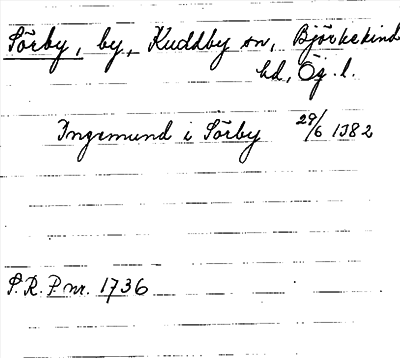 Sörby, by, Kuddby sn, Björkekind
hd, Ög. l.
Ingemund i Sörby 29/6 1382
S. R. P. nr. 1736